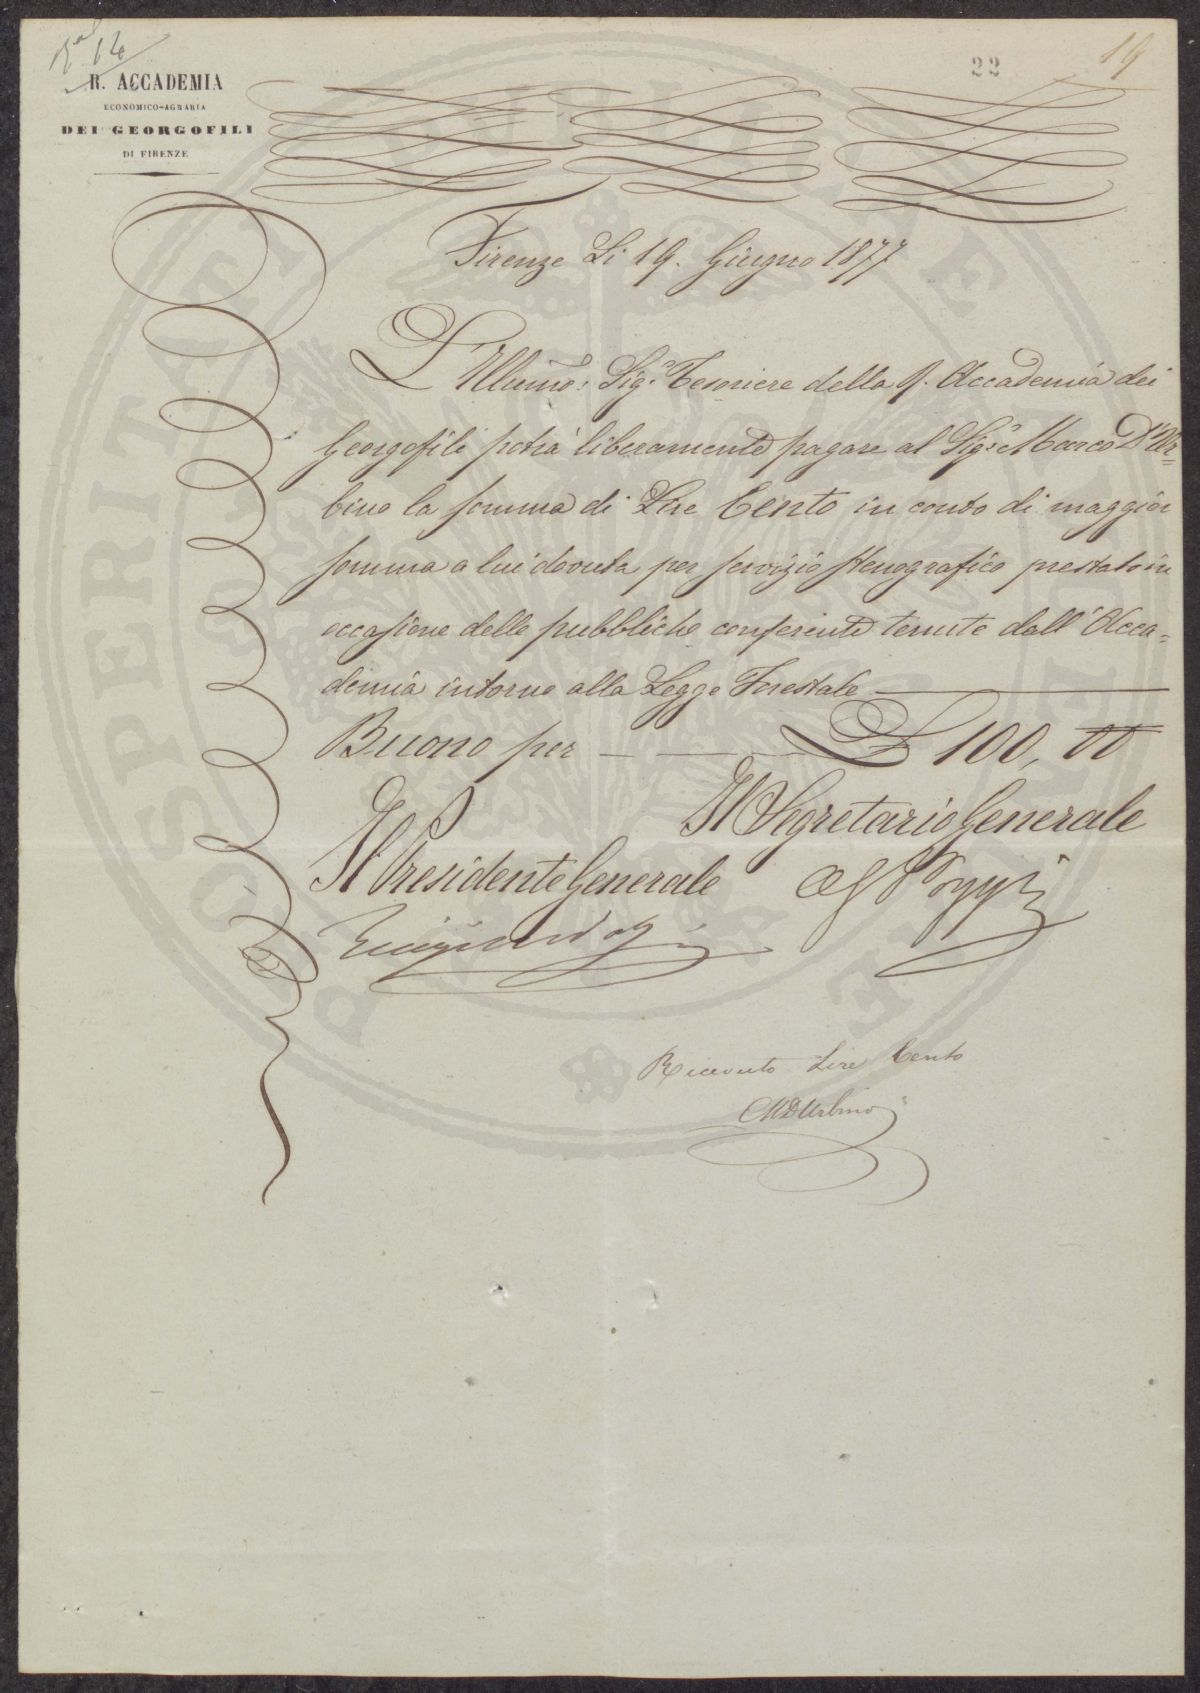 N° 14
22
19
R. ACCADEMIA
ECONOMICO-AGRARIA
DEI GEORGOFILI
DI FIRENZE
Firenze Li 19. Giugno 1877
L'Illumo: Sigr. Tesoriere della R. Accademia dei
Georgofili potrà liberamente pagare al Sigre Marco D'Ur=
bino la somma di Lire Cento in conto di maggior
somma a lui dovuta per servizio stenografico prestato in
occasione delle pubbliche conferenze tenute dall'Acca=
demia intorno alla Legge Forestale
Buono per L 100, 00
Il Segretario Generale
Il Presidente Generale
Poggi
Luigi Ridolfi
Ricevuto Lire Cento
M D'Urbino
PROSPERITATI